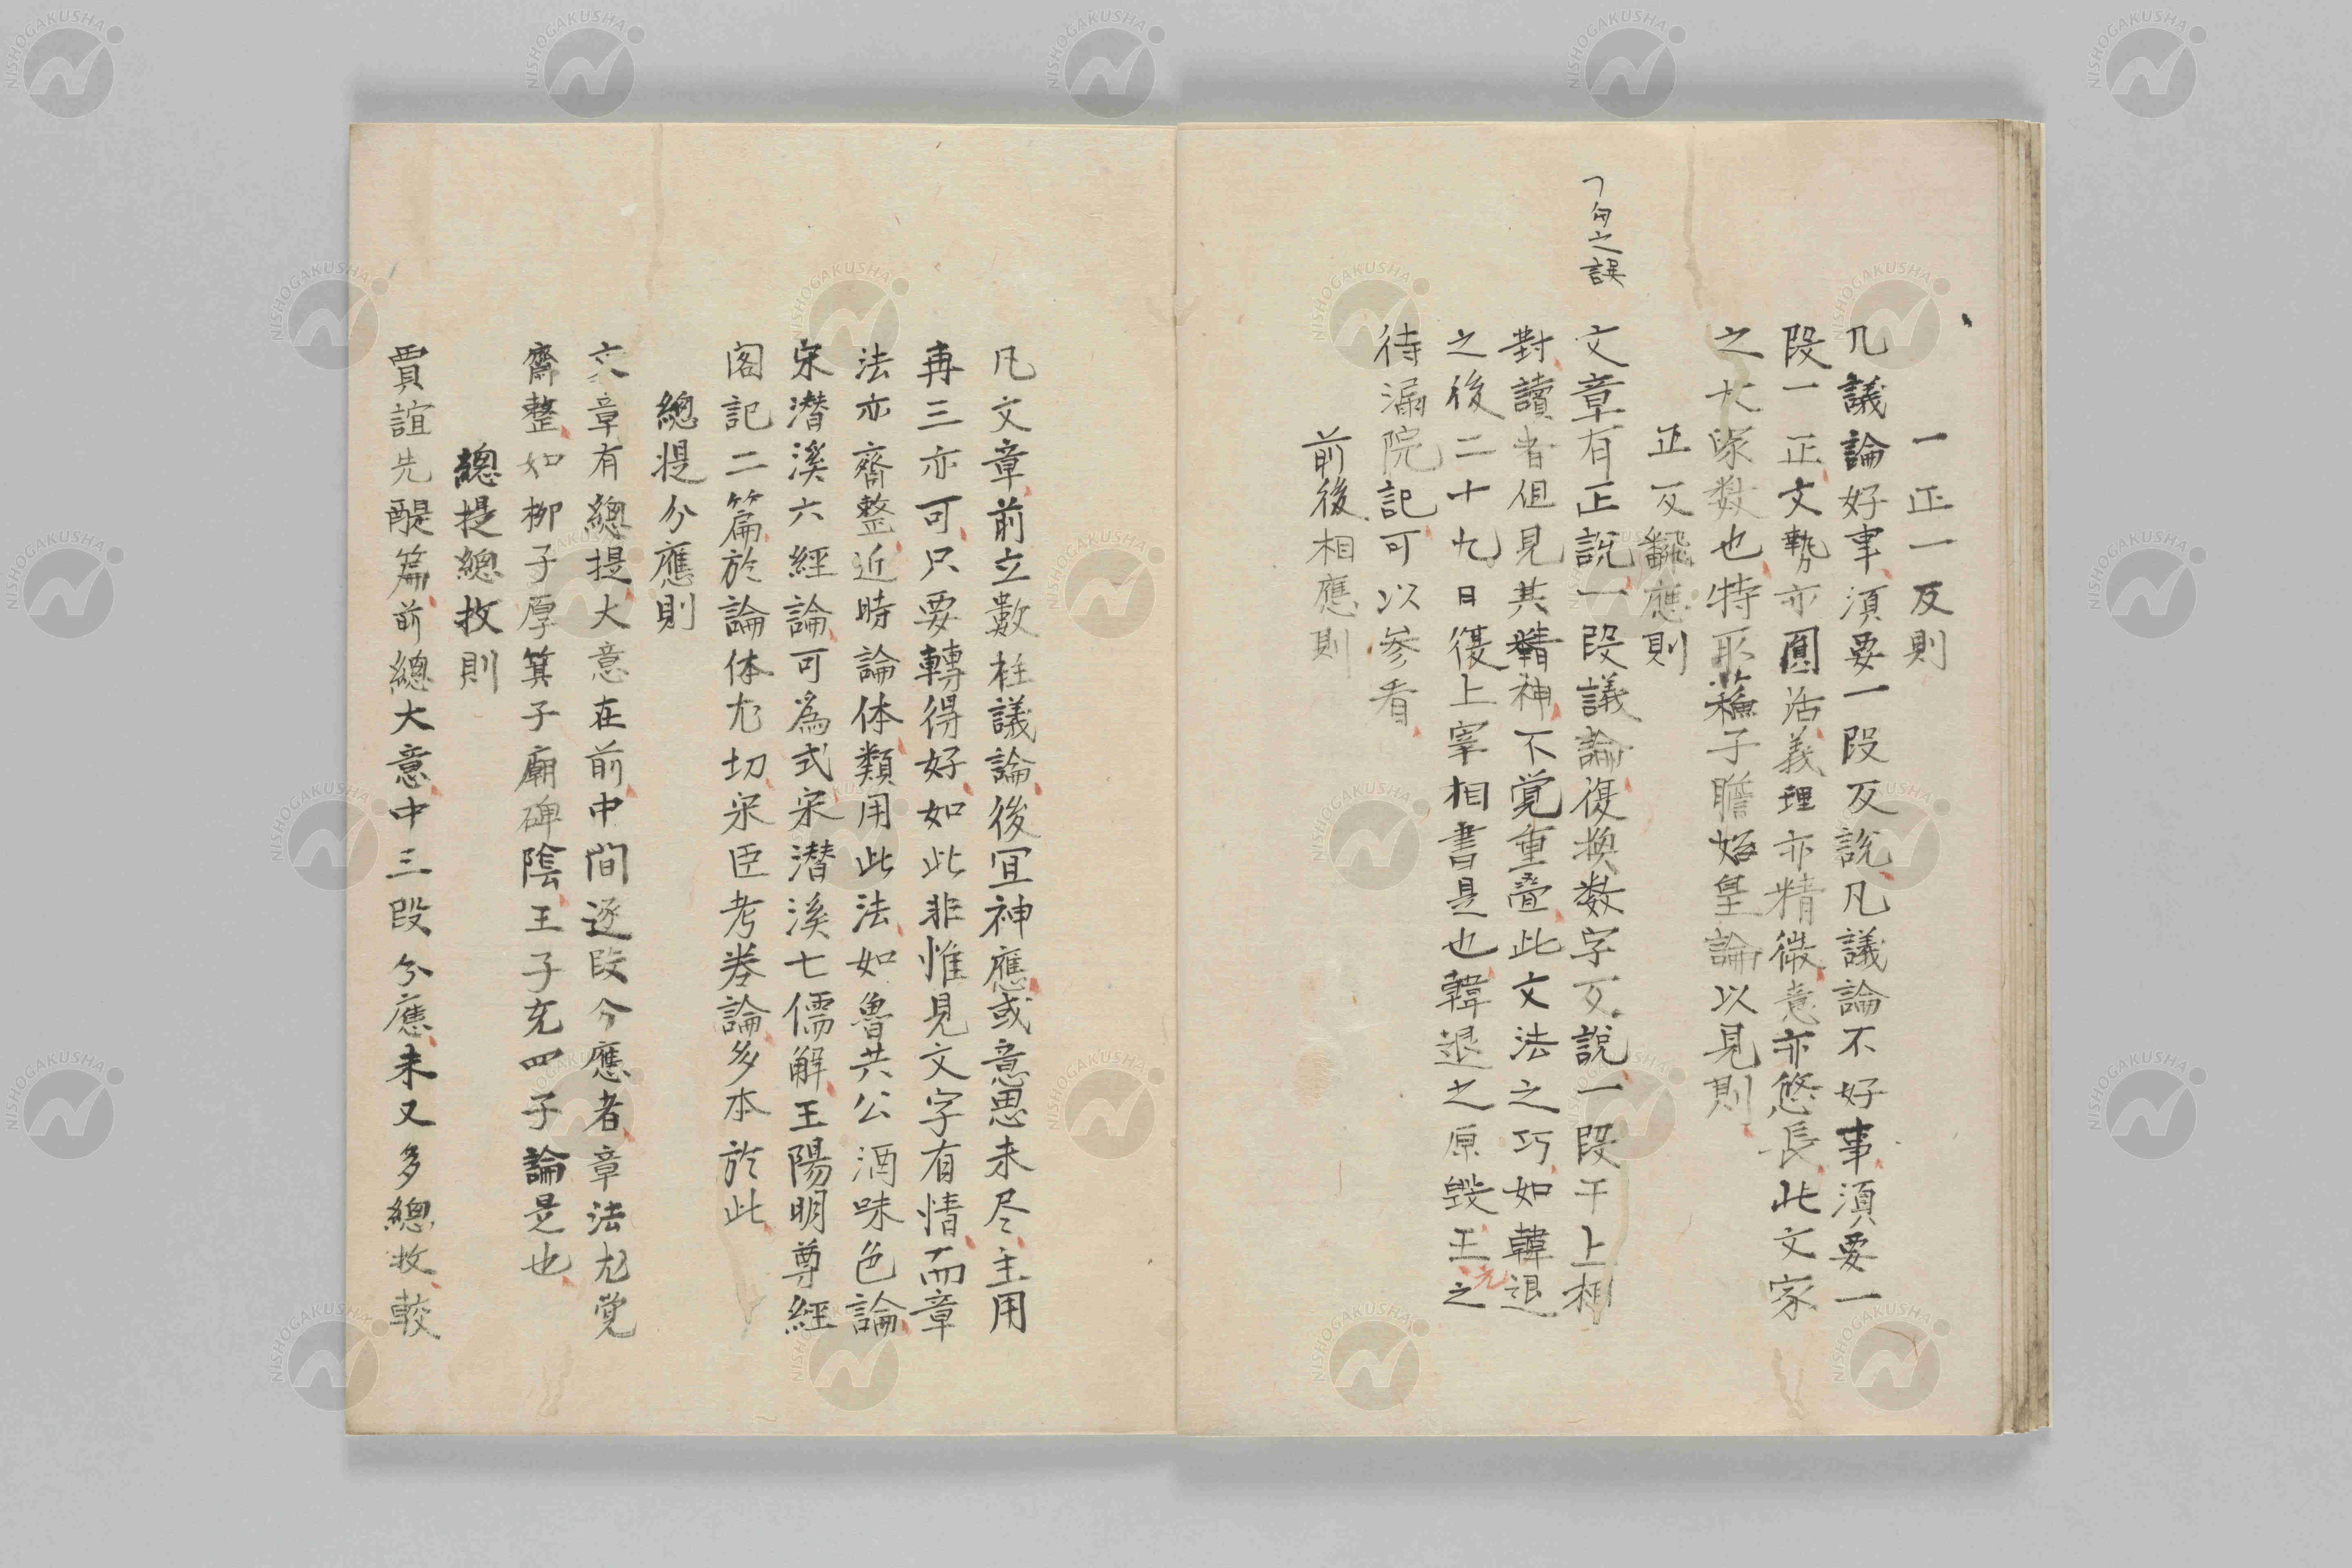 一正一反則
凡議論好事須要一段反說凡議論不好事須要一
段一正文勢亦圓活義理亦精微意亦悠長此文家
之大家数也特取蘓子瞻始皇論以見則
正反翻應則
丆勾之誤
文章有正說一段議論復換数字反說一段于上相
對讀者但見其精神不覚重疊此文法之巧如韓退
之後二十九日復上宰相書是也韓退之原毀王之
元
待漏院記可以参看
前後相應則
凡文章前立數柱議論後宜神應或意思未尽主用
再三亦可只要轉得好如此非惟見文字有情而章
法亦齊整近時論体類用此法如魯共公酒味色論
宋潜溪六經論可為式宋潜溪七儒解王陽明尊經
閣記二篇於論体尤切宋臣考巻論多本於此
總提分應則
文章有總提大意在前中間逐段分應者章法尤覚
齊整如栁子厚箕子廟碑陰王子充四子論是也
總提總收則
賈誼先醒篇前總大意中三段分應未又多總收較
NISHOGAKUSHA